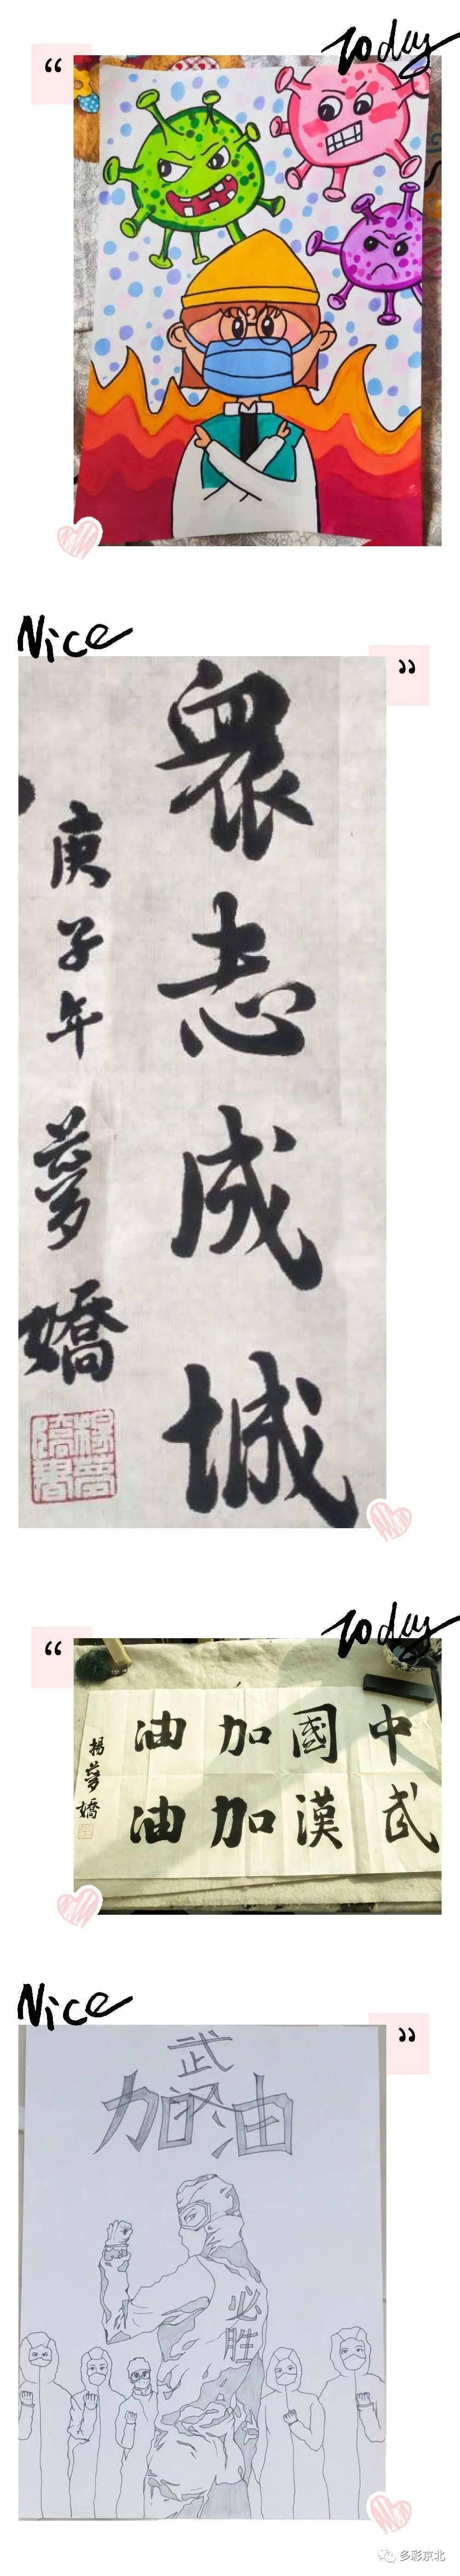 Today
“
Nice
”
衆志成城
庚子年夢嬌
楊夢嬌書
Today
“
中國加油
武漢加油
楊夢嬌
Nice
”
武汉
加油
必胜
多彩京北